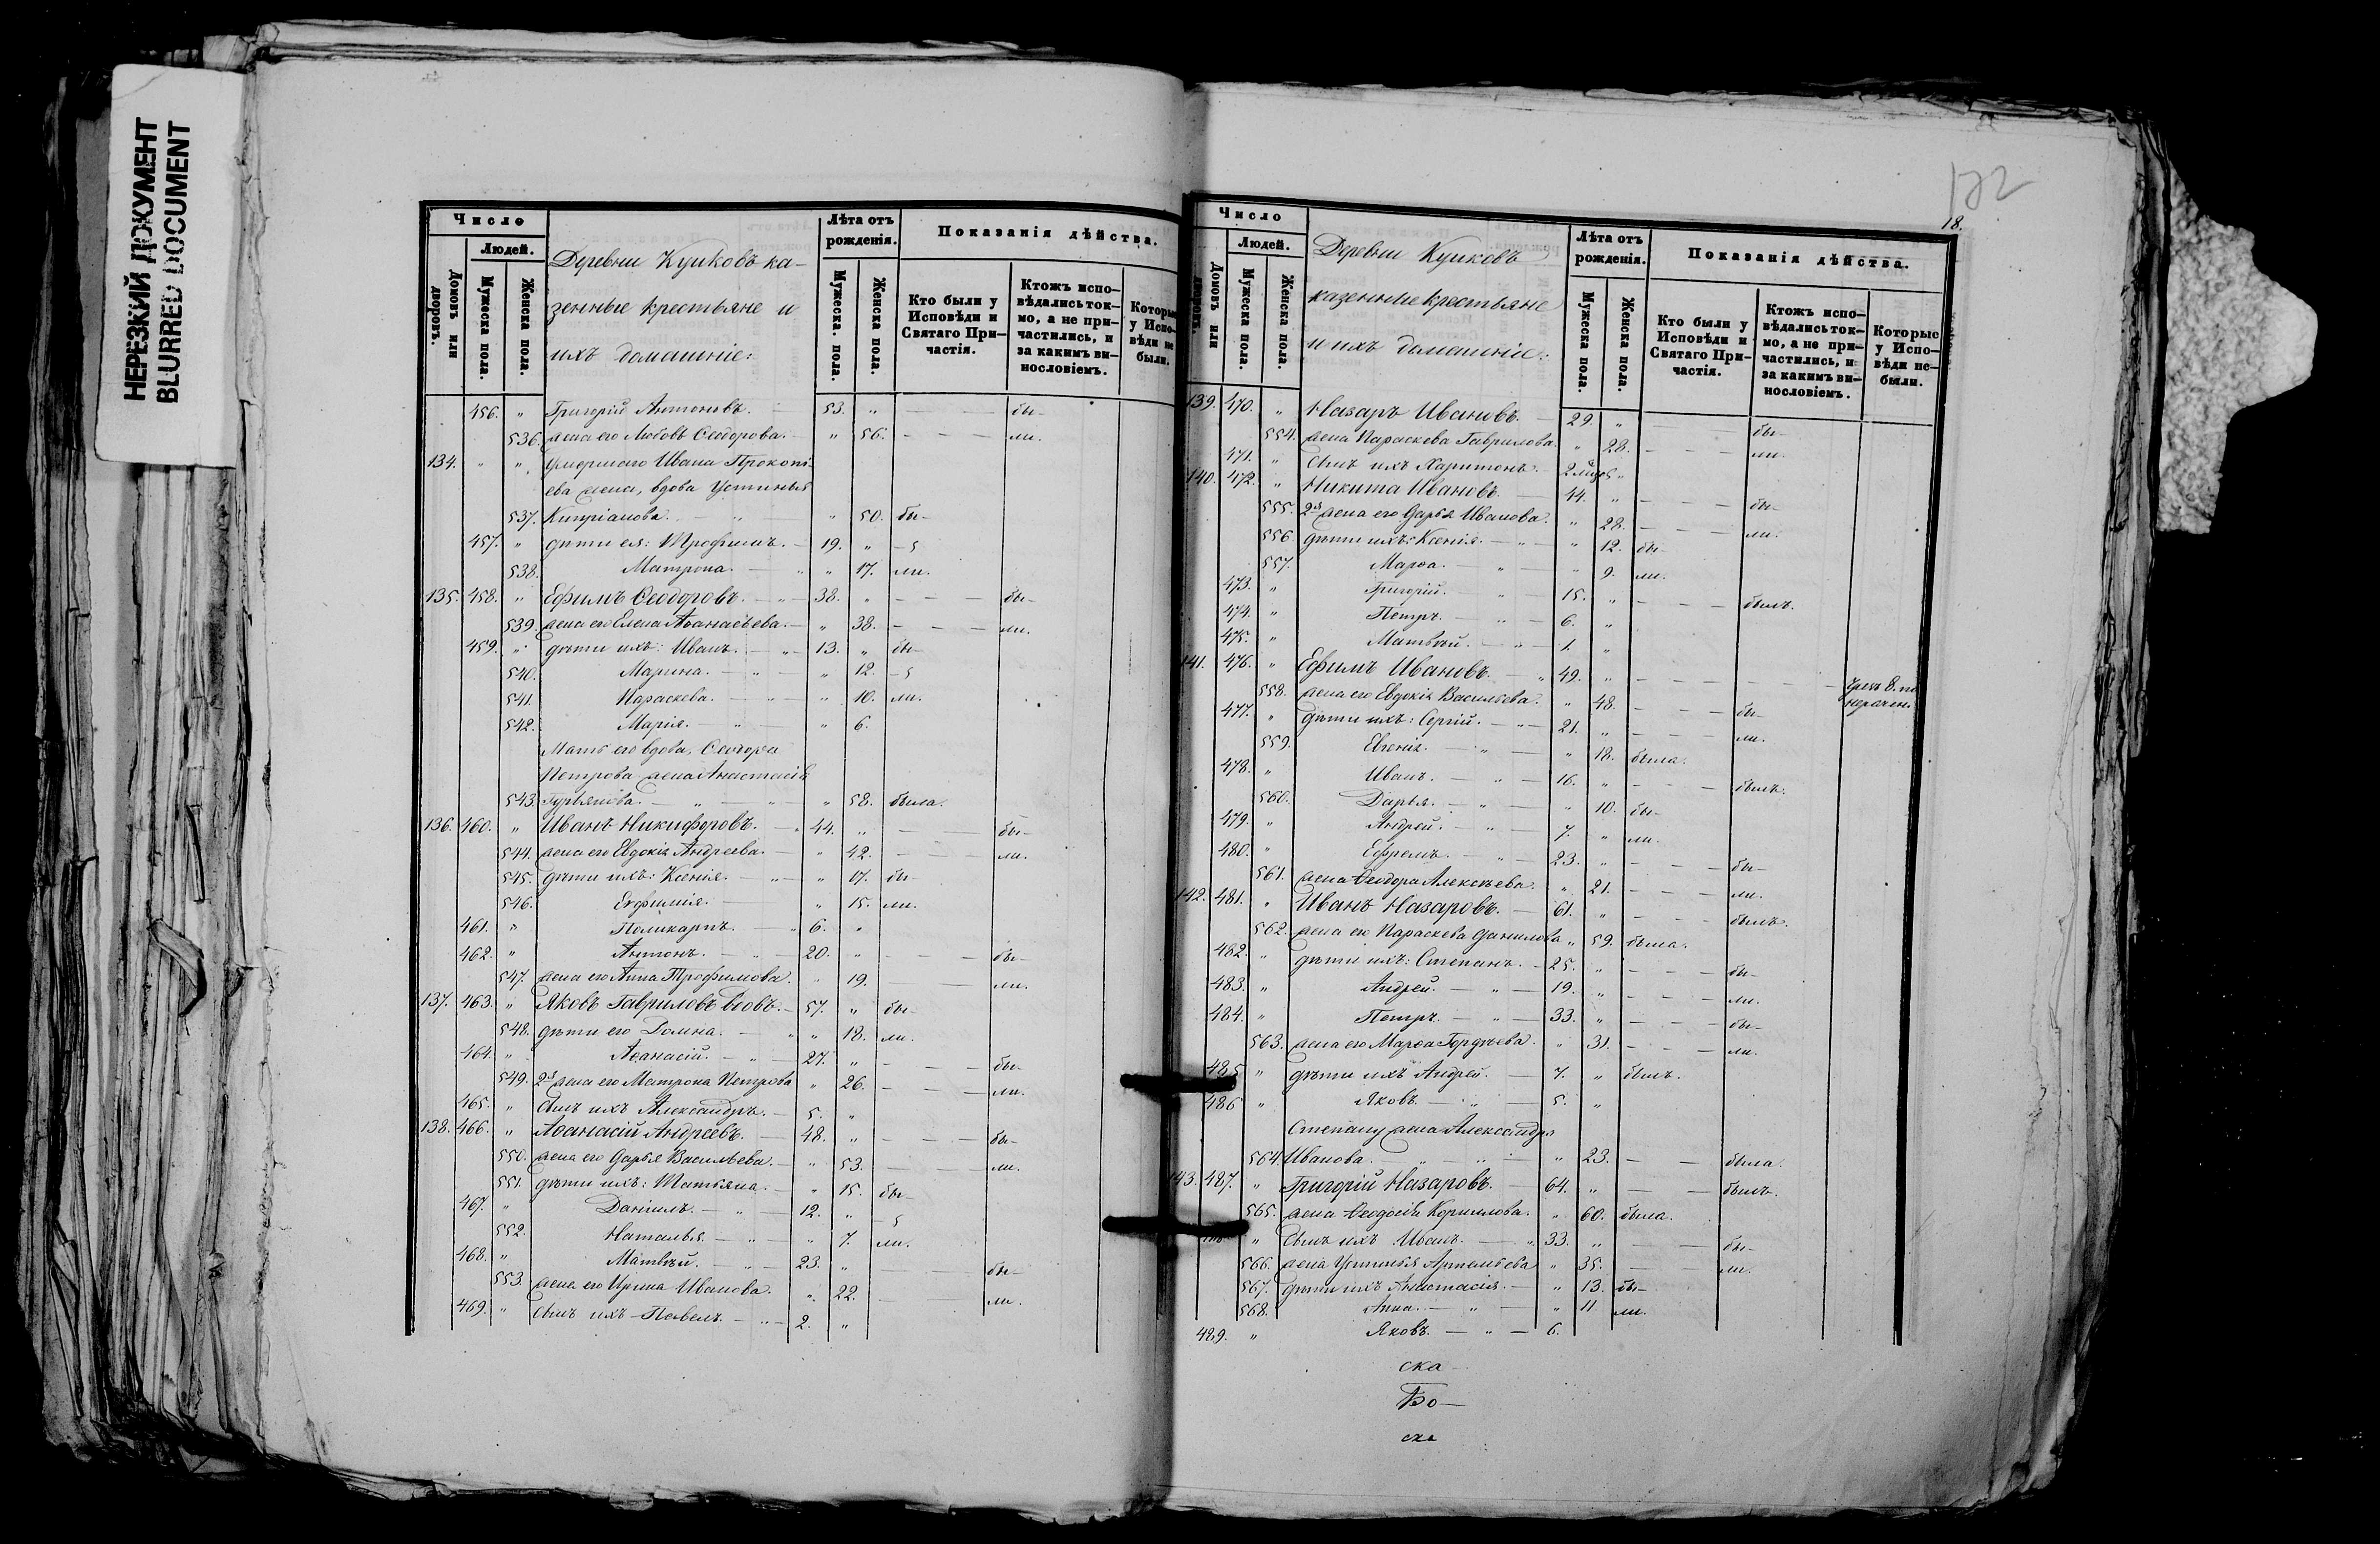 НЕРЕЗКИЙ ДОКУМЕНТ
BLURRED DOCUMENT
Число
Людей.
Домовъ или дворовъ.
Мужеска пола.
Женска пола.
Деревни Куиковъ ка-
зенные крестьяне и
ихъ домашніе:
Лѣта отъ рожденія.
Мужеска. пола.
Женска пола.
Показанія дѣйства.
Кто были у Исповѣди и Святаго При-частія.
Ктожъ испо-вѣдались ток-мо, а не при-частились, и за какимъ ви-нословіемъ.
Которые у Испо-вѣди не были.
456. " Григорій Антоновъ. — 53. " — — бы-
536. жена его Любовь Ѳеодорова. — " 56. — — ли.
134. " " Умершаго Ивана Прокопі-
ева жена, вдова Устинья
537. Кипріанова. — " " 50. бы-
457. " дѣти ея: Трофимъ. — 19. "
538. Матрона. — " " 17. ли.
135. 458. " Ефимъ Ѳеодоровъ. — " 38. " — — — бы-
539. жена его Елена Аѳанасьева. — " 38. — — — ли.
459. " дѣти ихъ: Иванъ. — " 13. " бы-
540. Марина. — " — " 12.
541. Параскева. — " — " 10. ли.
542. Марія. — " — " 6.
Мать его вдова, Ѳеодора
Петрова жена Анастасія
543. Гурьянова. — " — " " 58. была.
136. 460. " Иванъ Никифоровъ. — " 44. " — — бы-
544. жена его Евдокія Андреева. — " 42. — — ли.
545. дѣти ихъ: Ксенія. — " — " 17. бы-
546. Евфимія. — " 15. ли.
461. " Поликарпъ. — " 6. "
462. " Антонъ. — " 20. " — — бы-
547. жена его Анна Трофимова. " 19. — — ли.
137. 463. " Яковъ Гавриловъ вдовъ. — 57. " бы-
548. дѣти его Домна. — " " 18. ли.
464. " Аѳанасій. — " — 27. " — — бы-
549. 2я жена его Матрона Петрова " 26. — — ли.
465. " Сынъ ихъ Александръ. — 5. "
138. 466. " Аѳанасій Андреевъ. — 48. " — — — бы-
550. жена его Дарья Васильева. — " 53. — — ли.
551. дѣти ихъ: Татьяна. — " 15. бы-
467. " Даніилъ. — " — 12. "
552. Наталья. — " — " 7. ли.
468. " Матвѣй. — " — 23. " — бы-
553. жена его Ирина Иванова. " 22. — ли.
469. " Сынъ ихъ Павелъ. — " — 2. "
18.
Число
Людей.
Домовъ или дворовъ.
Мужеска пола.
Женска пола.
Деревни Куиковъ
казенные крестьяне
и ихъ домашніе:
Лѣта отъ рожденія.
Мужеска пола.
Женска пола.
Показанія дѣйства.
Кто были у Исповѣди и Святаго При-частія.
Ктожъ испо-вѣдались ток-мо, а не при-частились, и за какимъ ви-нословіемъ.
Которые у Испо-вѣди не-были.
139. 470. " Назаръ Ивановъ. — 29. " — — бы-
554. жена Параскева Гаврилова. " 28. — — — ли.
471. " Сынъ ихъ Харитонъ. — "
140. 472. " Никита Ивановъ. — 44. " — — — бы-
555. 2я жена его Дарья Иванова. " 28. — — — ли.
556. дѣти ихъ: Ксенія. — " — " 12. бы-
557. Марѳа. — " — " 9. ли.
473. " Григорій. — " 15. " — — — былъ.
474. " Петръ. — " — 6. "
475. " Матвѣй. — " — 1. "
141. 476. " Ефимъ Ивановъ. — " 49. " — — — —
558. жена его Евдокія Васильева. " 48. — — — бы-
477. " дѣти ихъ: Сергій. — " — 21. " — — — ли.
559. Евгенія. — " — " 18. была.
478. " Иванъ. — " — 16. " — — — былъ.
560. Дарья. — " — " 10. бы-
479. " Андрей. — " — 7. " ли.
480. " Ефремъ. — " — 23. " — — — бы-
561. жена Ѳеодора Алексѣева. " 21. — — — ли.
142. 481. " Иванъ Назаровъ. — 61. " — — — былъ.
562. жена его Параскева Данилова " 59. была.
482. " дѣти ихъ: Степанъ. — 25. " — — — бы-
483. " Андрей. — " — 19. " — — — ли.
484. " Петръ. — " — 33. " — — — бы-
563. жена его Марѳа Гордѣева. " 31. — — — ли.
485 " дѣти ихъ Андрей. — 7. " былъ.
486 " Яковъ. — " — 5. "
Степану жена Александра
564. Иванова. " — " " 23. — — была.
143. 487. " Григорій Назаровъ. — 64. " — — былъ.
565. жена Ѳеодосія Корнилова. " 60. была.
" Сынъ ихъ Иванъ. — " 33. " — — бы-
566. жена Устинья Артемьева " 35. — — ли.
567. дѣти ихъ Анастасія. — " 13. бы-
568. Анна. — " — " 11 ли.
489. " Яковъ. — " — 6.
ска
Бо-
ска